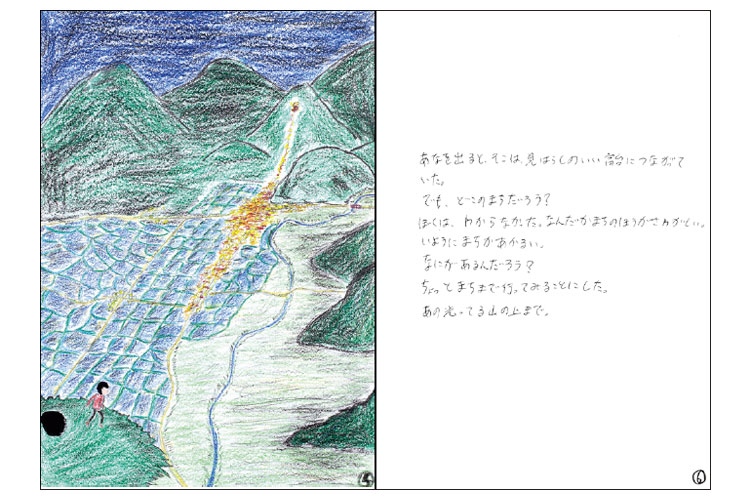 あなを出ると、そこは、見はらしのいい高台につながって
いた。
でも、どこのまちだろう?
ぼくは、わからなかった。なんだかまちのほうがさわがしい。
いようにまちがあかるい。
なにがあるんだろう?
ちょっとまちまで行ってみることにした。
あの光ってる山の上まで。
5
6